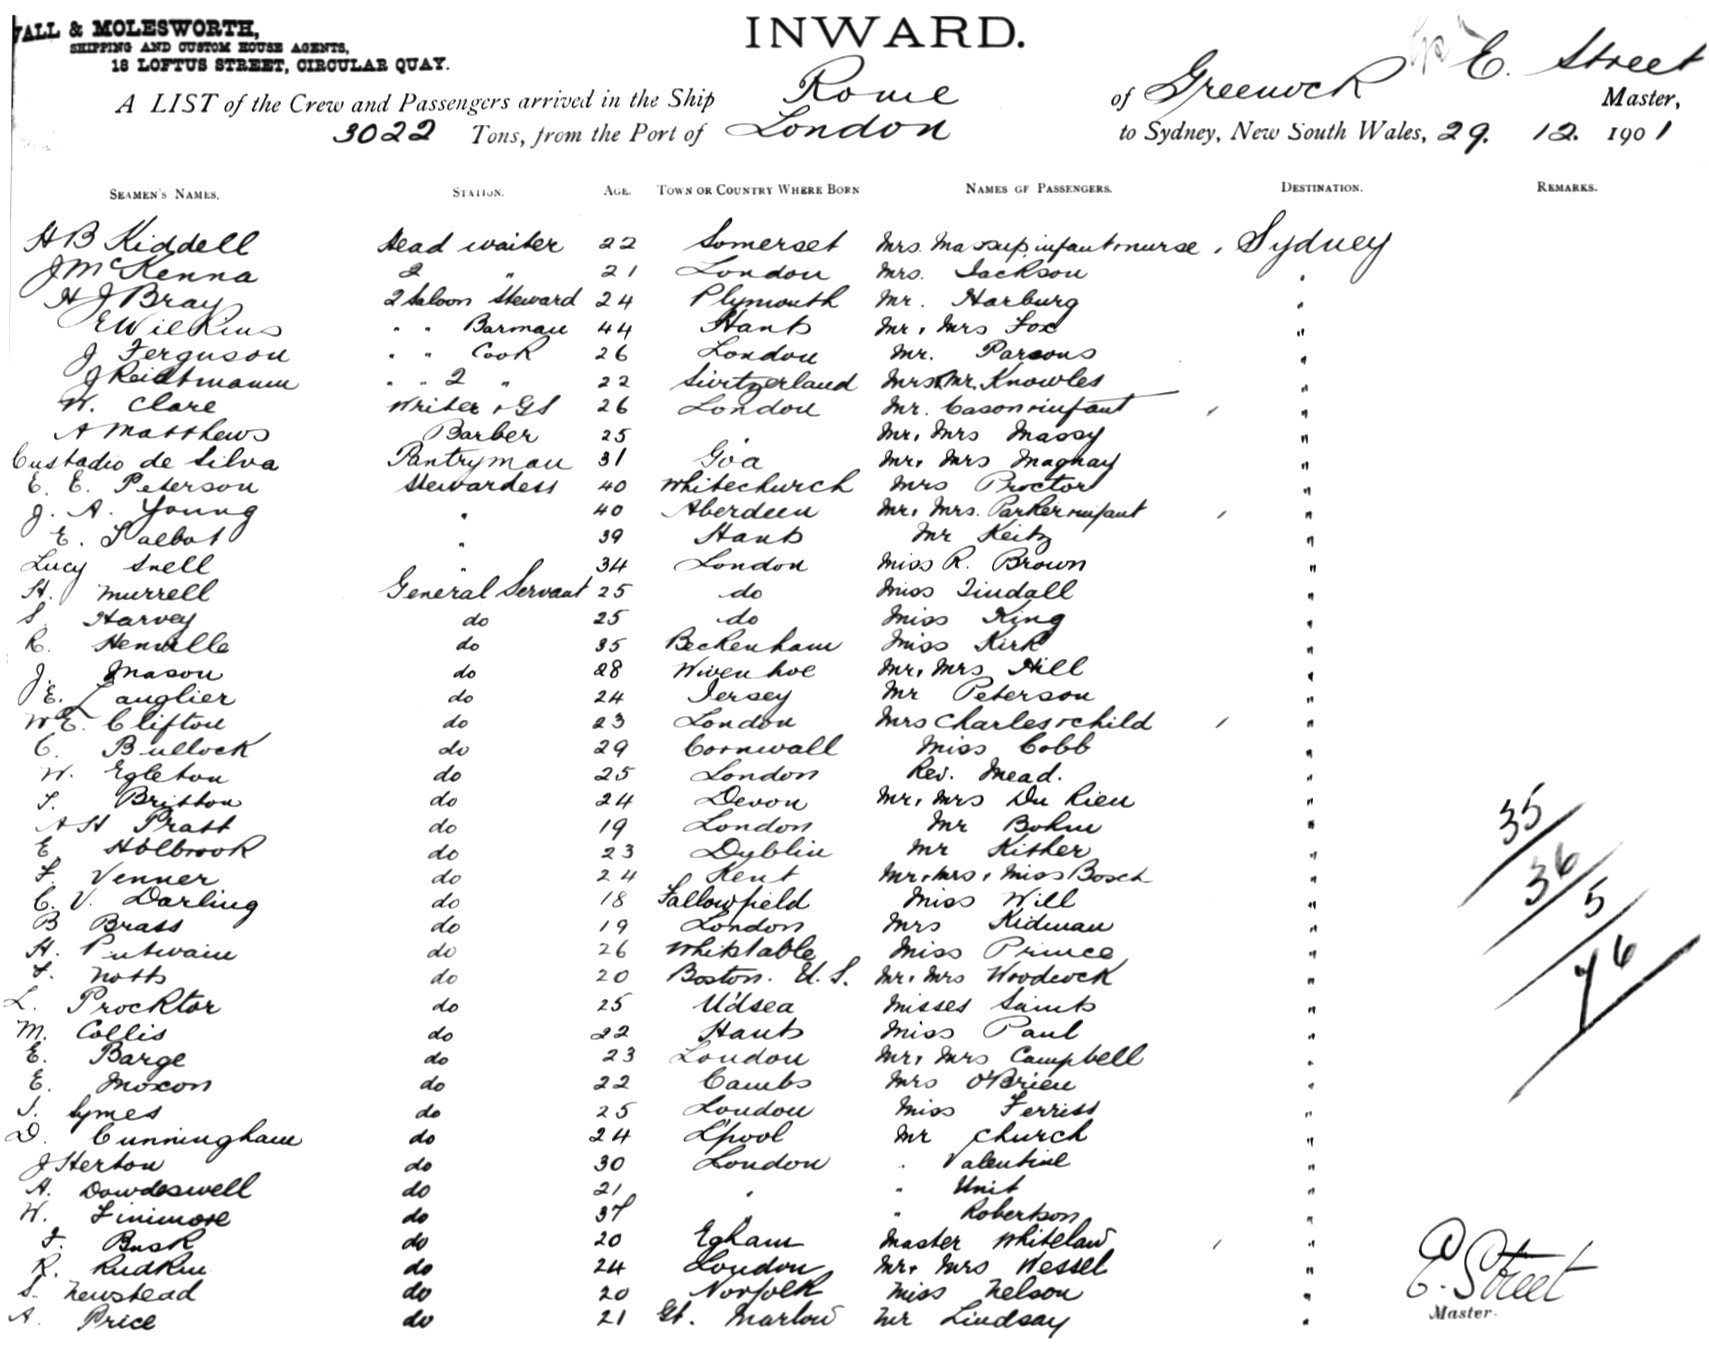 WALL & MOLESWORTH,
SHIPPING AND CUSTOM HOUSE AGENTS,
18 LOFTUS STREET, CIRCULAR QUAY.
INWARD.
A LIST of the Crew and Passengers arrived in the Ship Rome of Greenock E. Street Master,
3022 Tons, from the Port of London to Sydney, New South Wales, 29. 12. 1901
SEAMEN'S NAMES. STATION. AGE. TOWN OR COUNTRY WHERE BORN NAMES OF PASSENGERS. DESTINATION. REMARKS.
H B Kiddell Head waiter 22 Somerset Mrs. infant + nurse , Sydney
J McKenna 2 " 21 London Mrs. Jackson "
H J Bray 2 Saloon Steward 24 Plymouth Mr. Harburg "
E Wilkins " " Barman 44 Hants Mr , Mrs Fox "
J Ferguson " " Cook 26 London Mr. Parsons "
J " " 2 " 22 Switzerland Mrs + Mr. Knowles "
W. Clare Writer + GS 26 London Mr. Cason + infant , "
A Matthews Barber 25 " Mr, Mrs Massy "
Custadio de Silva Pantryman 31 Goa Mr, Mrs Magnay "
E. E. Peterson Stewardess 40 Whitechurch Mrs Proctor "
J. A. Young " 40 Aberdeen Mr, Mrs. Parker + infant , "
E. Talbot " 39 Hants Mr Keitz "
Lucy Snell " 34 London Miss R. Brown "
H. Murrell General Servant 25 do Miss Tindall "
S. Harvey do 25 do Miss King "
R. Henville do 35 Beckenham Miss Kirk "
J. Mason do 28 Wivenhoe Mr, Mrs Hill "
E. Langlier do 24 Jersey Mr Peterson "
W E. Clifton do 23 London Mrs Charles + child , "
C. Bullock do 29 Cornwall Miss Cobb "
W. Egleton do 25 London Rev. Mead. "
T. Britton do 24 Devon Mr, Mrs Du Rieu "
A H Pratt do 19 London Mr Bohm "
E Holbrook do 23 Dublin Mr Kither "
F. Venner do 24 Kent Mr, Mrs , Miss Bosch "
C. V. Darling do 18 Fallowfield Miss Will "
B Brass do 19 London Mrs Kidman "
H. Putwain do 26 Whitstable Miss Prince "
F. Notts do 20 Boston. U.S. Mr, Mrs Woodcock "
L. Procktor do 25 Misses Saints "
M. Collis do 22 Hants Miss Paul "
E. Barge do 23 London Mr, Mrs Campbell "
E. Moxon do 22 Cambs Mrs O'Brien "
J. Symes do 25 London Miss Ferriss "
D. Cunningham do 24 L'pool Mr Church "
J Herton do 30 London " Valentine "
A. Dowdeswell do 21 " " Unit "
W. Finimore do 37 " " Robertson "
F. Busk do 20 Egham Master Whitelaw , "
R. Rudkin do 24 London Mr, Mrs Wessel "
S. Newstead do 20 Norfolk Miss Nelson "
A. Price do 21 Gt. Marlow Mr Lindsay "
35
36
5
76
E. Street
Master.